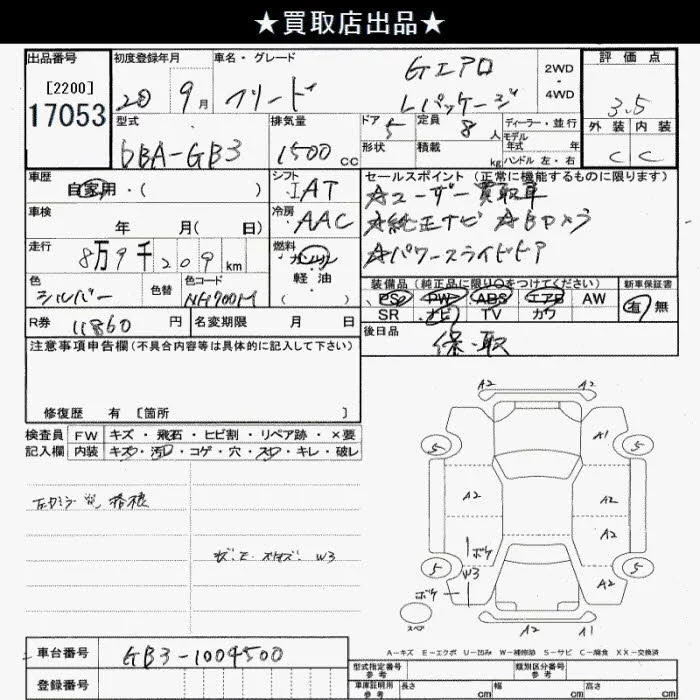 ★買取店出品★
出品番号 初度登録年月 車名・グレード 2WD・4WD 評価点
[2200] 17053 20 9月 フリード Gエアロ Lパッケージ 3.5
型式 排気量 ドア 定員 ディーラー・並行 外装 内装
DBA-GB3 1500cc 5 8人 モデル年式 年 C C
形状 積載 kg ハンドル 左・右
車歴 シフト セールスポイント (正常に機能するものに限ります)
自家用・( ) IAT ☆ユーザー買取車
車検 年 月( 日) 冷房 AAC ☆純正ナビ ☆
走行 8万9千209km 燃料 ガソリン・軽油 ( ) ☆パワースライドドア
色 色替 色コード 装備品(純正品に限り○をつけてください) 新車保証書
シルバー NH700M PS PW ABS エアB AW 有 無
R券 11860円 名変期限 月 日 SR ナビ TV カワ
後日品 保・取
注意事項申告欄(不具合内容等は具体的に記入して下さい)
修復歴 有 〔箇所 〕
検査員 FW キズ・飛石・ヒビ割・リペア跡・×要
記入欄 内装 キズ・汚・コゲ・穴・スレ・キレ・破レ
W3
A2 A2
A1
5 5
A2 A2
A2
ボケ
5 W3 A2 5
ボケ
スペア
A2 A1
A-キズ E-エクボ U-凹み W-補修跡 S-サビ C-腐食 XX-交換済
車台番号 GB3-1004500
登録番号
型式指定番号 参考 類別区分番号 参考
車庫証明用 参考 長さ cm 幅 cm 高さ cm